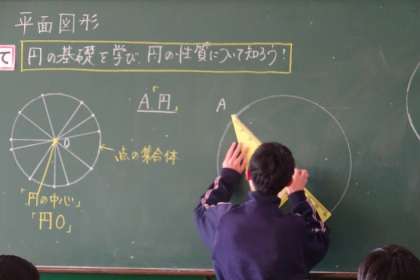 平面図形
て
円の基礎を学び 円の性質について知ろう!
A「円」
A
O
点の集合体
「円の中心」
「円O」